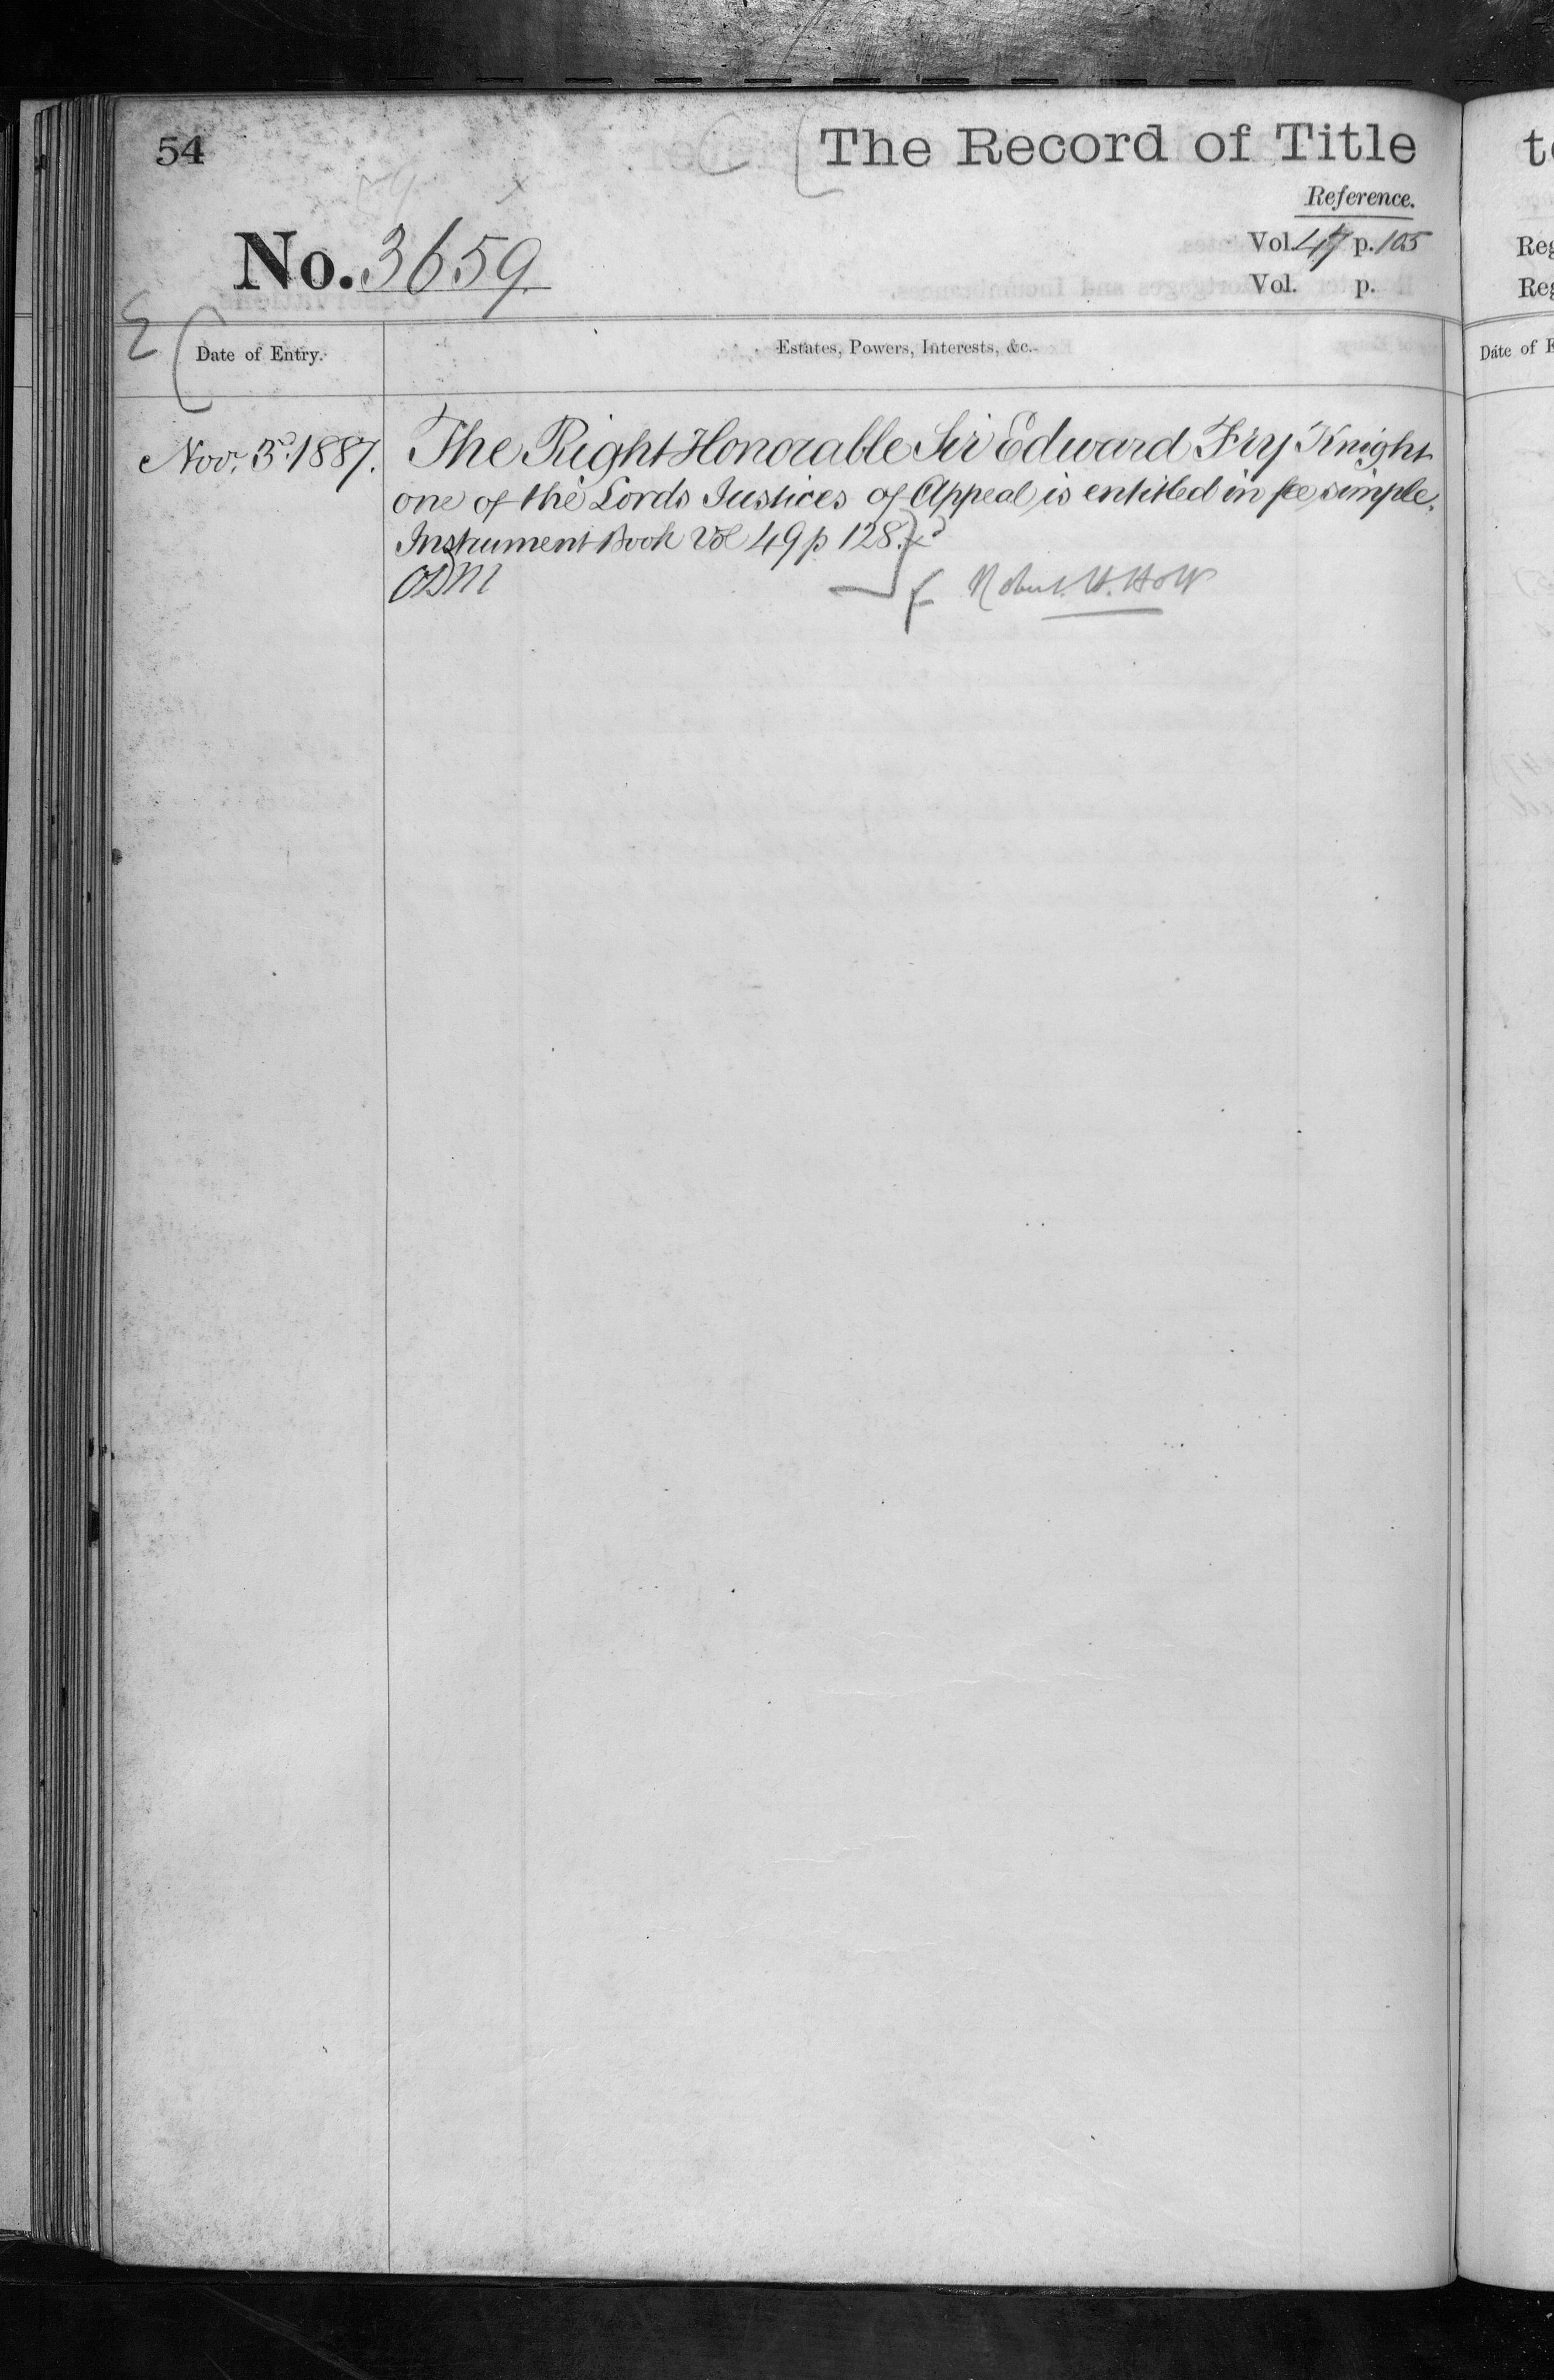 54
The Record of Title
Reference.
No. 3659.
Vol. 47 p. 105
Vol. p.
Date of Entry.
Estates, Powers, Interests, &c.
Nov. 3d. 1887.
The Right Honorable Sir Edward Fry Knight
one of the Lords Justices of Appeal is entitled in fee simple.
Instrument Book Vol 49 p 128.
Robert. H. Holt
Reg
Reg
Date of E